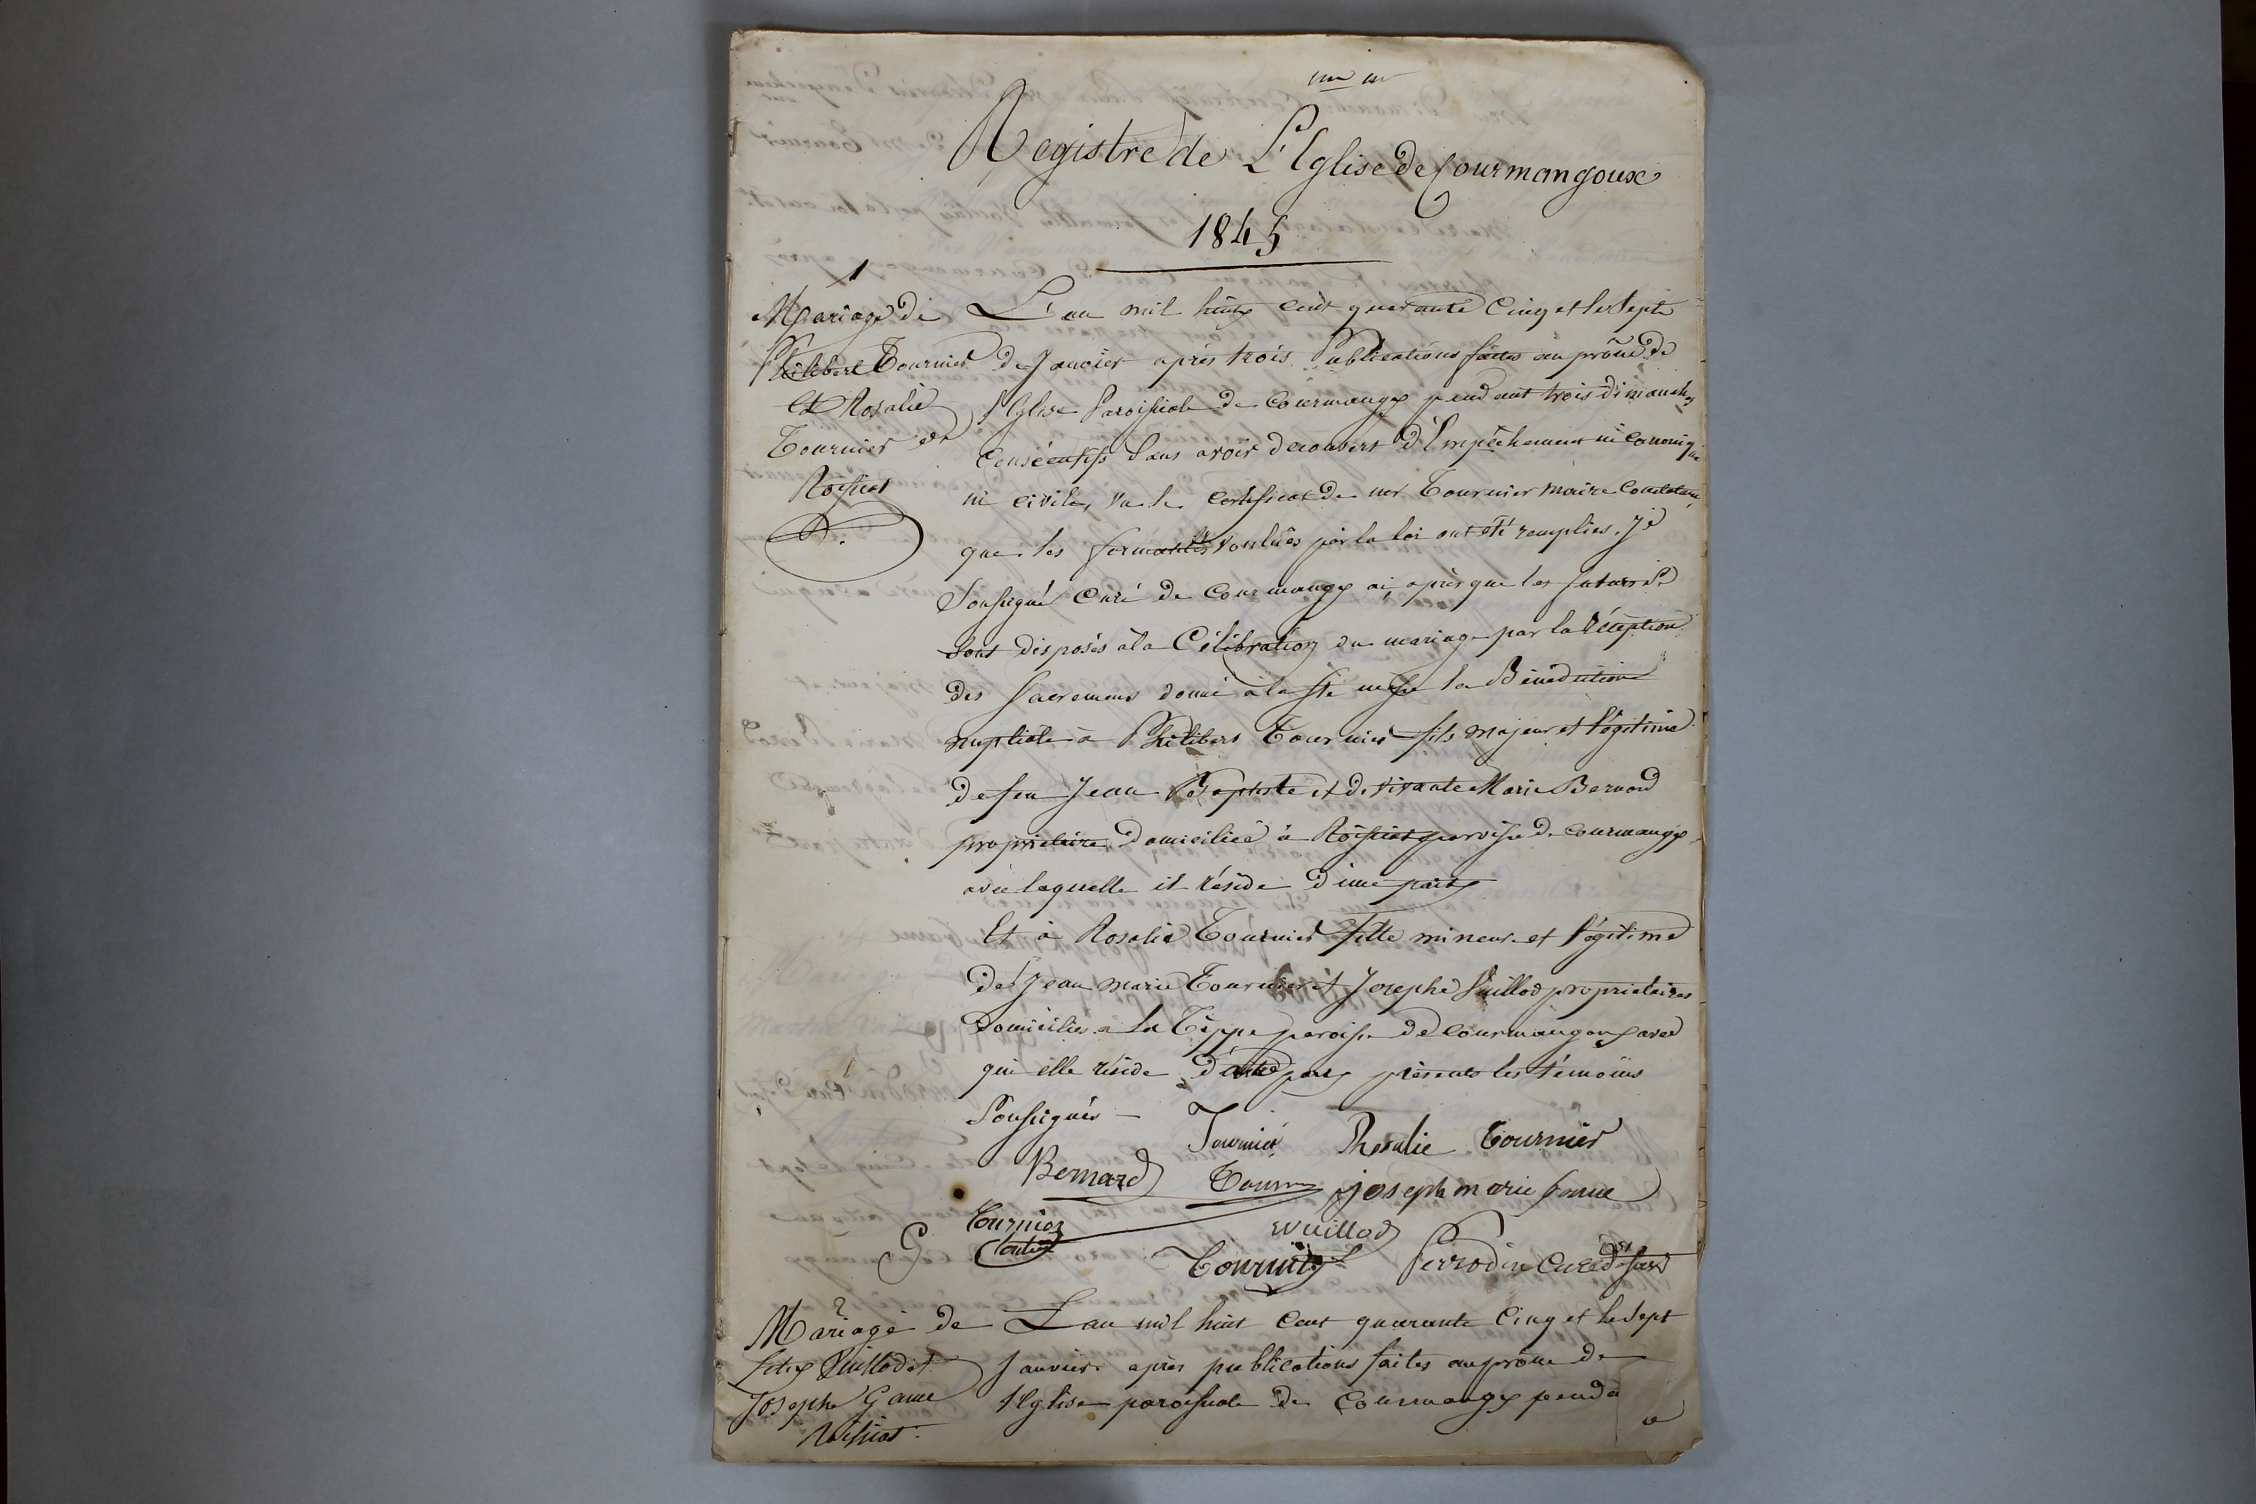 Registre de L'Eglise de Courmangoux
1845
1
Mariage de
Philibert Tournier
et Rosalie
Tournier de
Roissiat
L'an mil huit cent quarante cinq et le sept
de Janvier après trois Publications faites au prône de
l'Eglise Paroissiale de Courmangx pendant trois dimanches
consécutifs sans avoir découvert d'Empêchement ni canonique
ni civile, vu le certificat de mr Tournier maire constatant
que les formalités voulues par la loi ont été remplies. Je
Soussigné Curé de Courmangx ai, après que les futurs se
sont disposés à la Célébration du mariage par la Réception
des Sacremens donné à la Ste messe la Bénédiction
nuptiale à Philibert Tournier fils majeur et légitime
de feu Jean Baptiste et de vivante Marie Bernard
propriétaire domiciliée à Roissiat paroisse de Courmangx
avec laquelle il réside d'une part
Et à Rosalie Tournier fille mineure et légitime
de Jean marie Tournier et Josephe Vuillod propriétaires
domiciliés à la Tippe paroisse de Courmangoux avec
qui elle réside d'autre part présents les témoins
Soussignés
Tournier Rosalie Tournier
Bernard Tournier joseph marie
Tournier
vuillod
Tournier Perrodin Curé
2
Mariage de
Felix Vuillod et
Josephe Game
Roissiat.
L'an mil huit cent quarante cinq et le sept
Janvier après publications faites au prône de
l'Eglise paroissiale de Courmangx penda